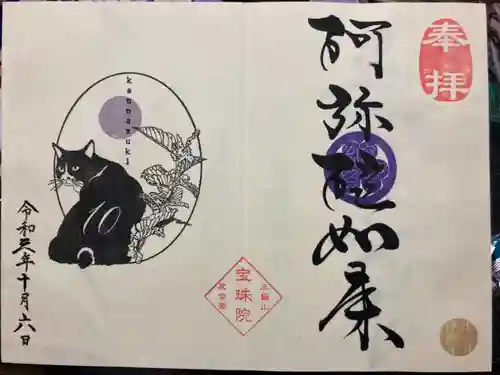 奉拝
阿弥陀如来
宝珠院
kannazuki
10
令和三年十月六日